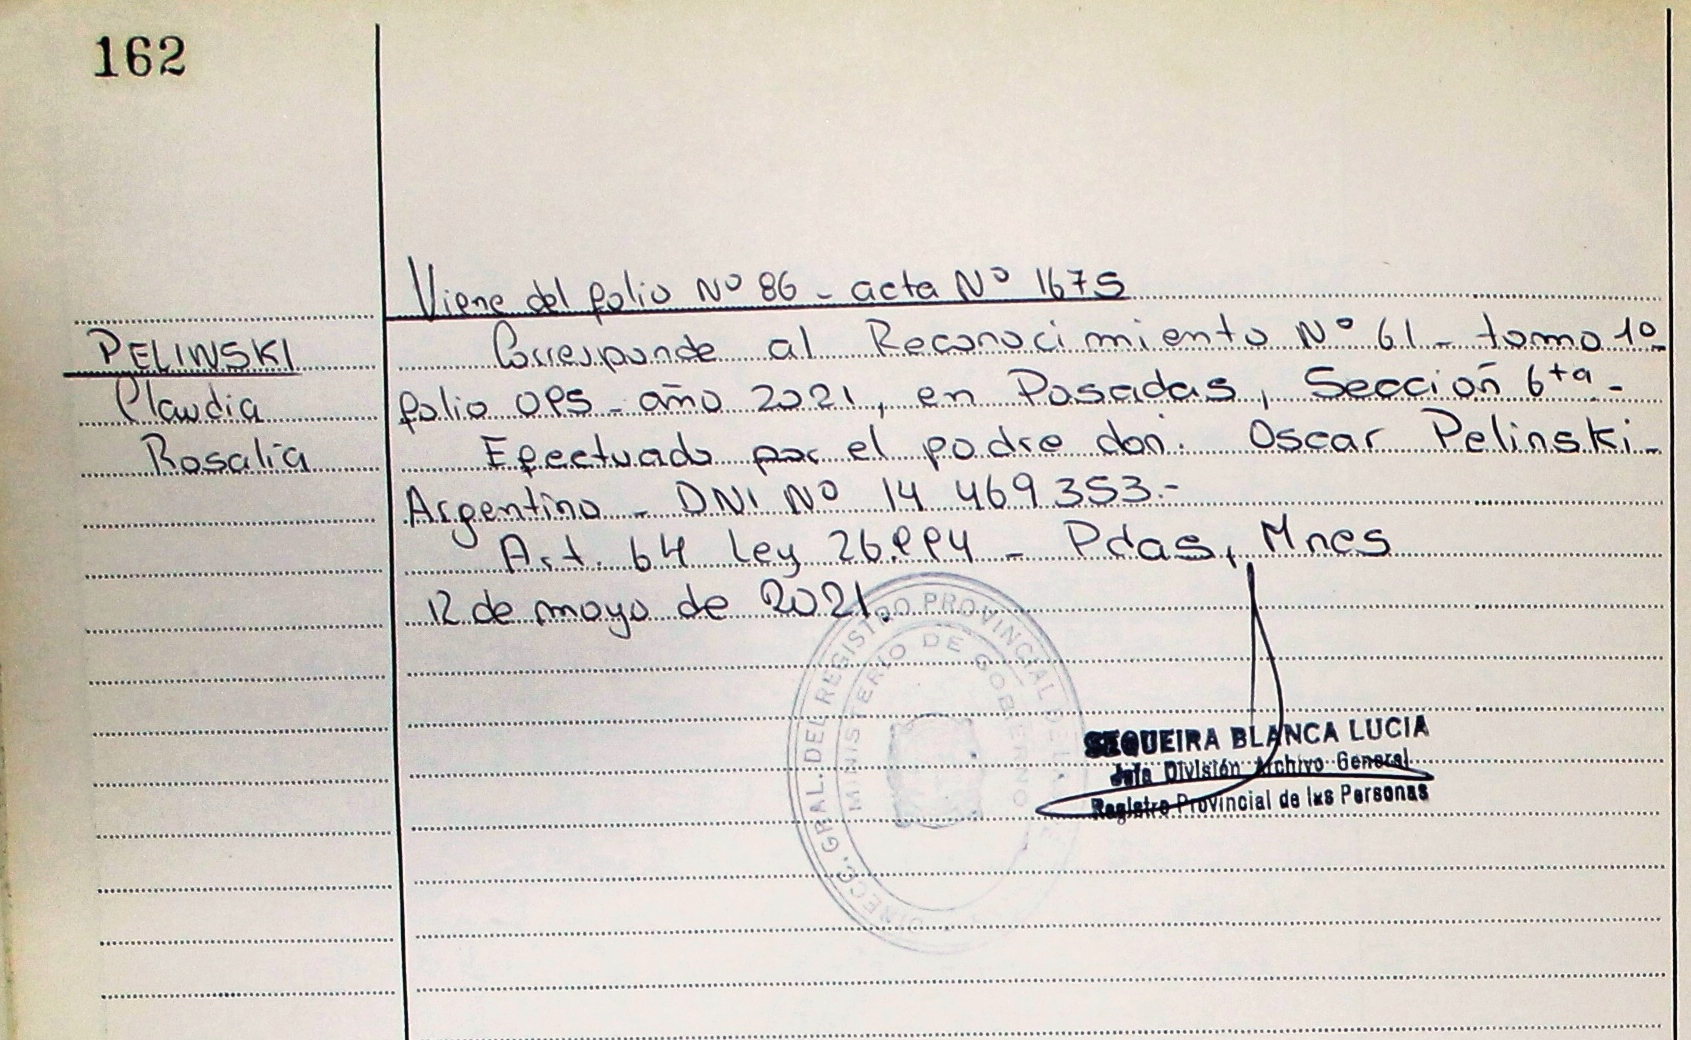 162
Viene del folio Nº 86 - acta Nº 1675
PELINSKI
Claudia
Rosalía
Corresponde al Reconocimiento Nº 61 - tomo 1º
folio 095 - año 2021, en Posadas, Sección 6ta -
Efectuado por el padre don: Oscar Pelinski -
Argentino - DNI Nº 14 469.353.-
Art. 64 Ley 26.994 - Pdas, Mnes
12 de mayo de 2021.
DIRECC. GRAL. DEL REGISTRO PROVINCIAL DE LAS
MINISTERIO DE GOBIERNO
SEQUEIRA BLANCA LUCIA
Jefa División Archivo General
Registro Provincial de las Personas